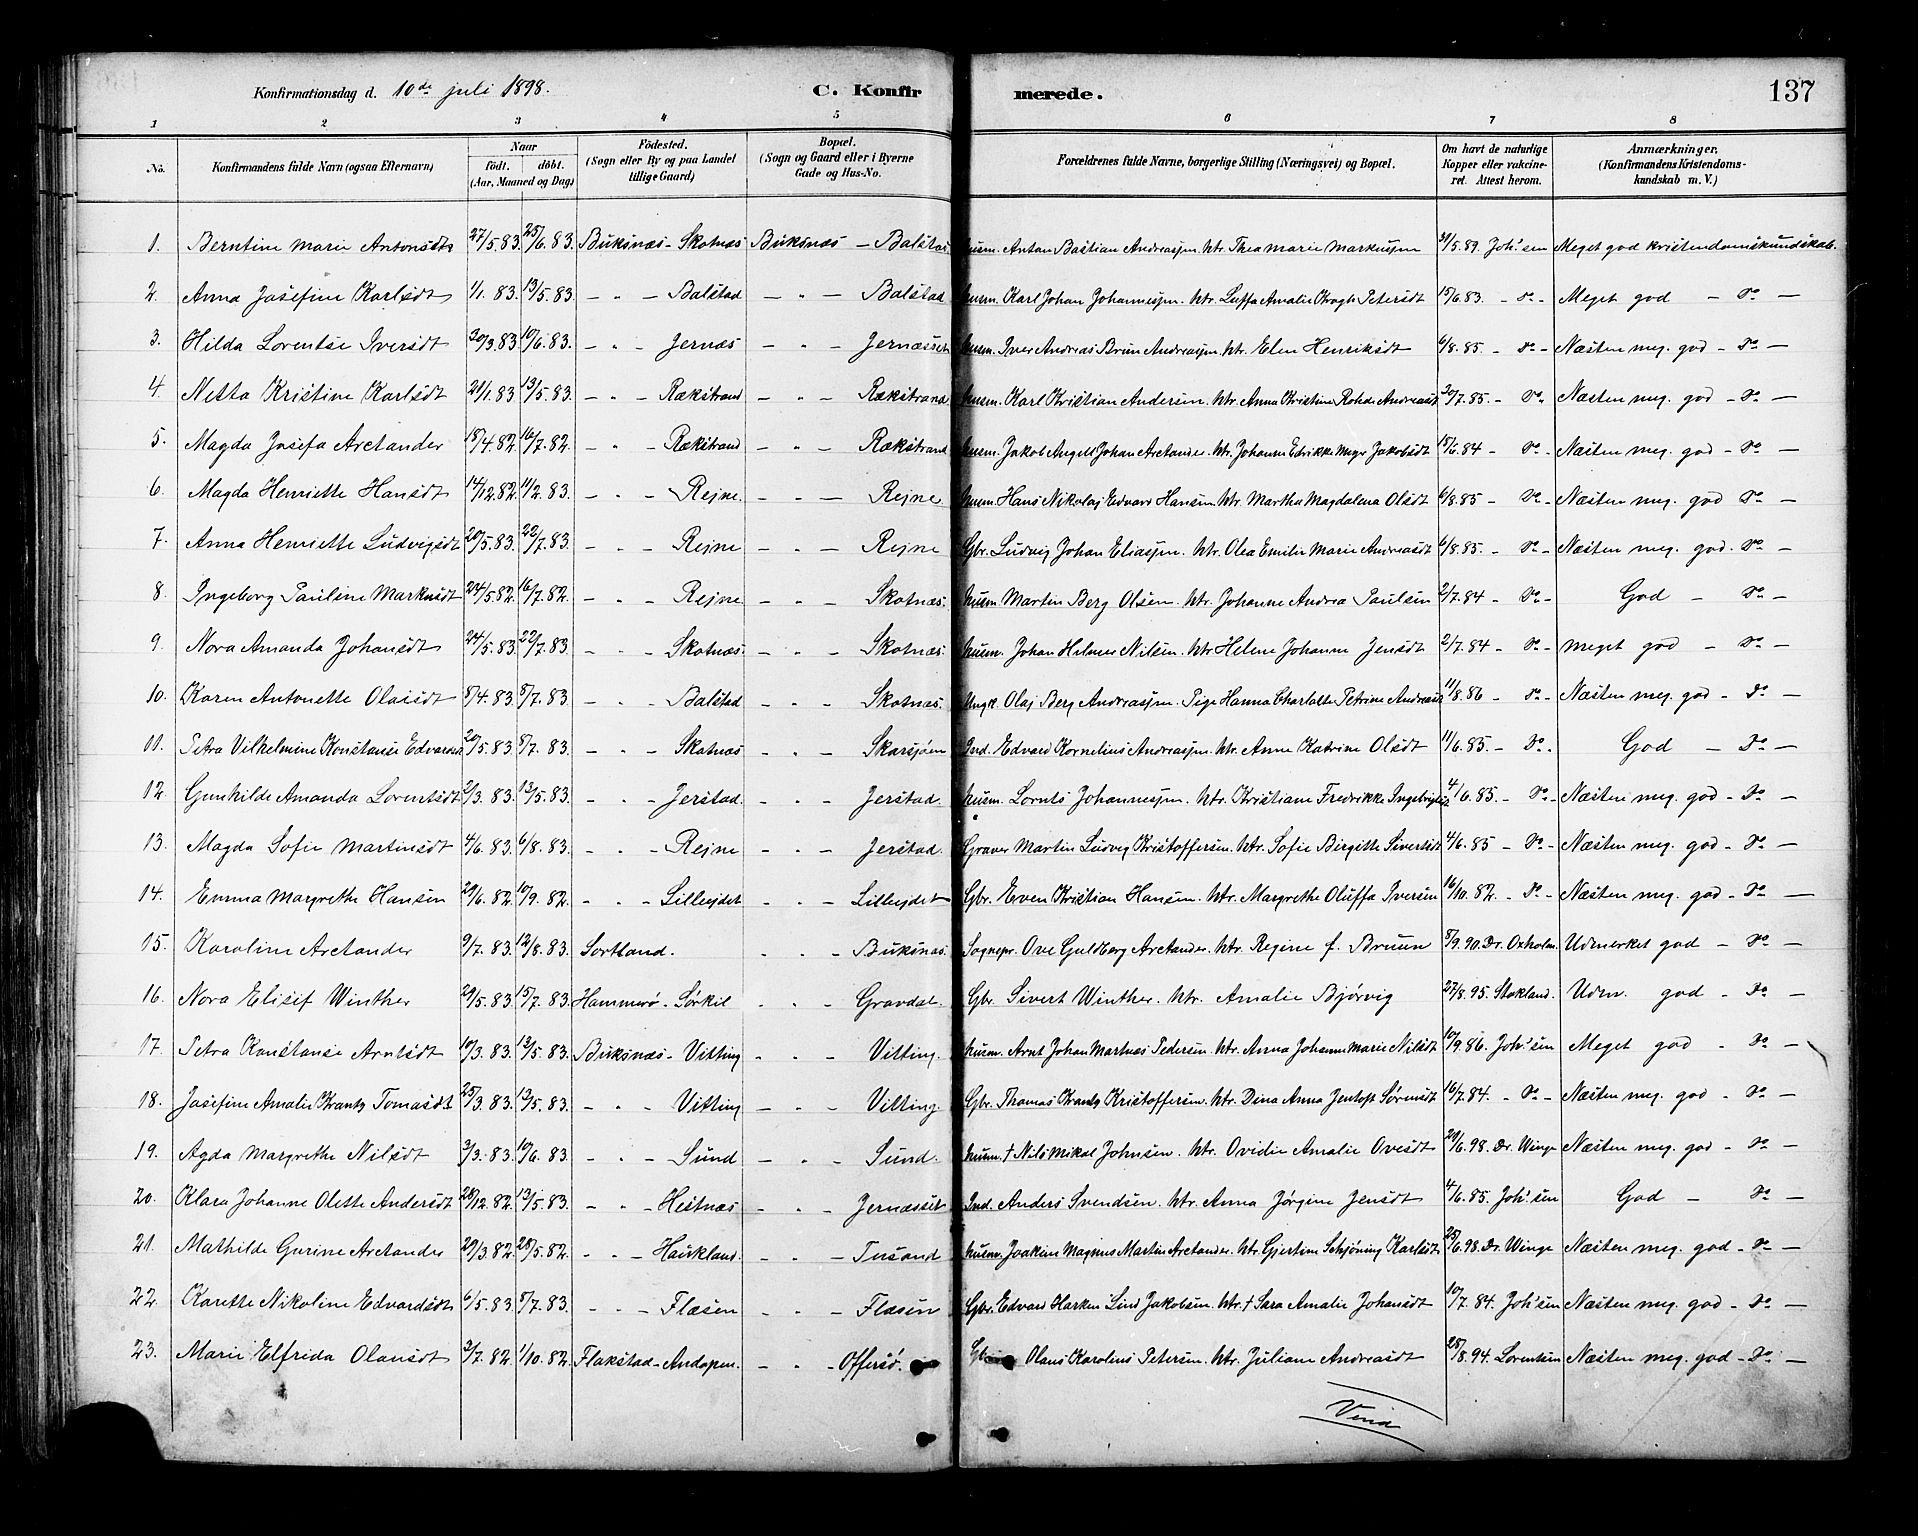 Konfirmationsdag d. 10de juli 1898. C. Konfirmerede. 137
1 2 3 4 5 6 7 8
No. Konfirmandens fulde Navn (ogsaa Efternavn) Naar födt. döbt. (Aar, Maaned og Dag) Födested. (Sogn eller By og paa Landet tillige Gaard) Bopæl. (Sogn og Gaard eller i Byerne Gade og Hus-No. Forældrenes fulde Navne, borgerlige Stilling (Næringsvei) og Bopæl. Om havt de naturlige Kopper eller vakcineret. Attest herom. Anmærkninger, (Konfirmandens Kristendomskundskab m. V.)
1. Berntine Marie Antonsdt 27/5.83. 25/6.83. Buksnæs - Skotnæs Buksnæs - Balstad Husm. Anton Bastian Andreassen. Htr. Thea Marie Markussen 31/5.89. Joh!sen Meget god kristendomskundskab.
2. Anna Josefine Karlsdt 1/1.83. 13/5.83. - " - Balstad - " - Balstad Husm. Karl Johan Johannessen. Htr. Luffa Amalie Krogh Petersdt 15/6.83. - do - Meget god - do -
3. Hilda Lorentse Iversdt 30/3.83 10/6.83. - " - Jernæs - " - Jernæsset Husm. Iver Andreas Brun Andreassen. Htr. Elen Henriksdt 6/8.85. - do - Næsten meg. god - do -
4. Netta Kristine Karlsdt 21/1.83 13/5.83. - " - Rækstrand - " - Rækstrand Husm. Karl Kristian Andersen. Htr. Anna Kristine Rohde Andreasdt 30/7.85. - do - Næsten meg. god - do -
5. Magda Josefa Arctander 18/4.82 16/7.82. - " - Rækstrand - " - Rækstrand Husm. Jakob Angell Johan Arctander. Htr. Johanne Edrikke Meyer Jakobsdt 15/6.84 - do - Næsten meg. god - do -
6. Magda Henriette Hansdt 14/12.82. 11/2.83. - " - Rejne - " - Rejne Husm. Hans Nikolaj Edvard Hansen. Htr. Martha Magdalena Olsdt 6/8.85 - do - Næsten meg. god do -
7. Anna Henriette Ludvigsdt 20/5.83. 22/7.83. - " - Rejne - " - Rejne Gbr. Ludvig Johan Eliassen. Htr. Olea Emilie Marie Andreasdt 6/8.85. - do - Næsten meg. god. do -
8. Ingeborg Pauline Markusdt 24/5.82. 16/7.82. - " - Rejne - " - Skotnæs. Husm Martin Berg Olsen. Htr. Johanne Andrea Paulsen 2/7.84 - do - God - do -
9. Nora Amanda Johansdt 24/5.83. 22/7.83 - " - Skotnæs. - " - Skotnæs. Husm. Johan Hilmer Nilsen. Htr Helene Johanne Jensdt 2/7.84 - do - meget god - do -
10. Karen Antonette Olaisdt 8/4.83. 8/7.83 - " - Balstad - " - Skotnæs. Ungk. Olaj Berg Andreassen. Pige Hanna Charlotte Petrine Andreasdt 11/8.86 - do - Næsten meg. god - do -
11. Petra Vilhelmine Konstanse Edvardsd 20/5.83. 8/7.83. - " - Skotnæs - " - Skarsjøen Ind. Edvard Kornelius Andreassen. Htr. Anne Katrine Olsdt 11/6.85. - do. God - do -
12. Gunhilde Amanda Lorentsdt 2/3.83. 13/5.83. - " - Jerstad. - " - Jerstad. Husm. Lornts Johannessen. Htr. Kristiane Fredrikke Ingebrigtsdt 4/6.85. - do - Næsten meg. god - do -
13. Magda Sofie Martinsdt 4/6.83. 6/8.83. - " - Rejne - " - Jerstad. Graver Martin Ludvig Kristoffersen. Htr. Sofie Birgitte Sivertsdt 4/6.85 - do - Næsten meg. god - do -
14. Emma Margrethe Hansen 29/6.82. 10/9.82. - " - Lillejdet - " - Lillejdet Gbr. Even Kristian Hansen. Htr. Margrethe Oluffa Iversen 16/10.82. - do - Næsten meg. god - do -
15. Karoline Arctander 9/7.83. 12/8.83. Sortland. - " - Buksnæs. Sognepr. Ove Guldberg Arctander. Htr. Regine f. Bruun 8/9.90. Dr. Oxholm. Udmerket god - do -
16. Nora Elisif Winther 29/5.83. 15/7.83. Hammerö - Sørkil - " - Gravdal. Gbr. Sivert Winther. Htr. Amalie Bjørvig 27/8.95. Stokland. Udm. god - do -
17. Petra Konstanse Arntsdt 10/3.83. 13/5.83. Buksnæs - Vitting - " - Vitting. Husm. Arnt Johan Martnæs Pedersen. Htr. Anna Johanne Marie Nilsdt 10/9.86. Joh!sen Meget god - do -
18. Josefine Amalie Krantz Tomasdt 25/3.83. 13/5.83. - " - Vitting - " - Vitting. Gbr. Thomas Krantz Kristoffersen. Htr. Dina Anna Jentoft Sørensdt 16/7.84. - do - Næsten meg. god - do -
19. Agda Margrethe Nilsdt 3/3.83. 10/6.83. - " - Sund - " - Sund. Husm. † Nils Mikal Johnsen. Htr. Ovidie Amalie Ovesdt 29/6.98. Dr. Winge Næsten meg. god - do -
20. Klara Johanne Olette Andersdt 28/12.82. 13/5.83. - " - Hestnæs - " - Jernæsset Ind. Anders Svendsen. Htr. Anna Jørgine Jensdt 4/6.85. Joh!sen God - do -
21. Mathilde Gurine Arctander 29/3.82. 28/5.82. - " - Haukland. - " - Tusand Husm. Joakim Magnus Martin Arctander. Htr. Gjertine Schjöning Karlsdt 25/6.98. Dr. Winge Næsten meg. god - do -
22. Karette Nikoline Edvardsdt 6/5.83. 8/7.83. - " - Flæsen - " - Flæsen Gbr. Edvard Harken Lind Jakobsen. Htr. † Sara Amalie Johansdt 10/7.84. Joh!sen Næsten meg. god - do -
23. Marie Elfrida Olausdt 3/7.82. 1/10.82. Flakstad - Andopen. - " - Offersö. Olaus Karolius Petersen. Htr. Juliane Andreasdt 28/8.94. Lorentsen Næsten meg. god - do -
Vend